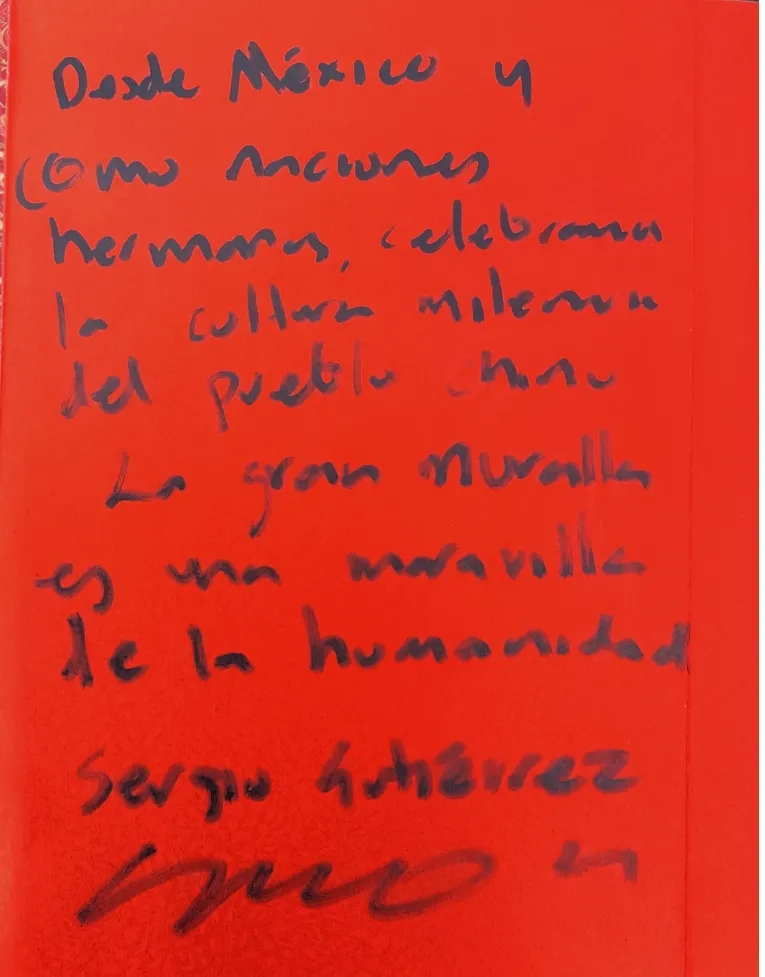 Desde México y
como naciones
hermanas, celebramos
la cultura milenaria
del pueblo chino
La gran Muralla
es una maravilla
de la humanidad
Sergio Gutiérrez